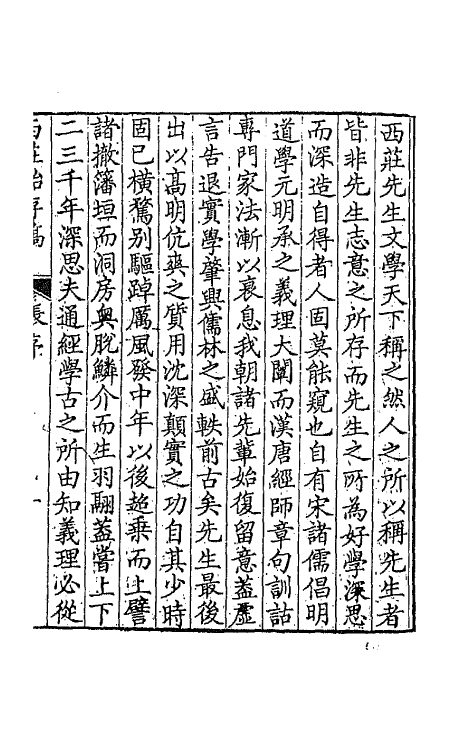 西莊先生文學天下稱之然人之所以稱先生者
皆非先生志意之所存而先生之所為好學深思
而深造自得者人固莫能窺也自有宋諸儒倡明
道學元明承之義理大闡而漢唐經師章句訓詁
專門家法漸以衰息我朝諸先輩始復留意蓋虛
言告退實學肇興儒林之盛軼前古矣先生最後
出以高明伉爽之質用沈深顛實之功自其少時
固已橫騖別驅踔厲風發中年以後趂乗而上譬
諸撤籓垣而洞房奥脫鱗介而生羽翮蓋嘗上下
二三千年深思夫通經學古之所由知義理必從
西莊始存稿
序